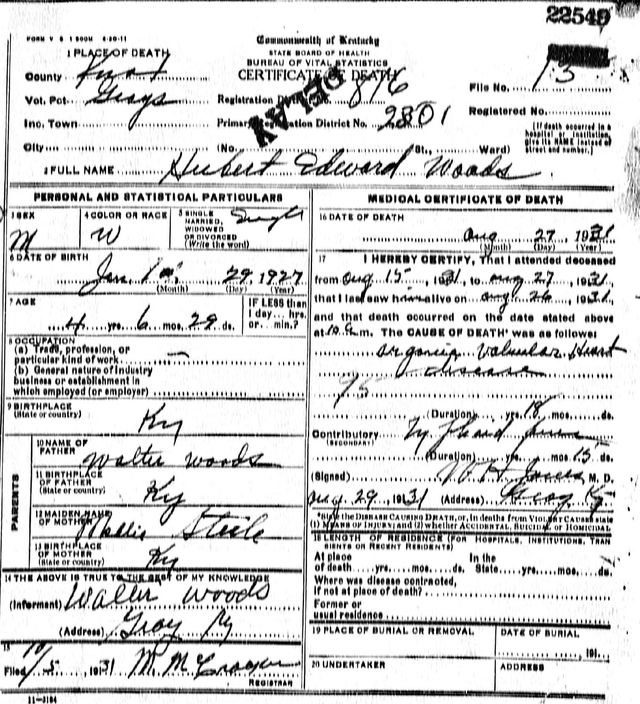 22549
FORM V S 1 500M 4-20-11
Commonwealth of Kentucky
STATE BOARD OF HEALTH
BUREAU OF VITAL STATISTICS
CERTIFICATE OF DEATH
DELAY
1 PLACE OF DEATH
County Knox
Vot. Pct. Grays
Inc. Town
City
Registration District No. 816
Primary Registration District No. 2801
(No. St., Ward)
File No. 13
Registered No.
(If death occurred in a hospital or institution, give its NAME instead of street and number.)
2 FULL NAME Hubert Edward Woods
PERSONAL AND STATISTICAL PARTICULARS
3 SEX M
4 COLOR OR RACE W
5 SINGLE, MARRIED, WIDOWED OR DIVORCED (Write the word) Single
6 DATE OF BIRTH
Jan 29, 1927
(Month) (Day) (Year)
7 AGE
4 yrs. 6 mos. 29 ds.
IF LESS than 1 day... hrs. or... min.?
8 OCCUPATION
(a) Trade, profession, or particular kind of work
(b) General nature of industry business or establishment in which employed (or employer)
9 BIRTHPLACE
(State or country) Ky
PARENTS
10 NAME OF FATHER Walter Woods
11 BIRTHPLACE OF FATHER (State or country) Ky
12 MAIDEN NAME OF MOTHER Mollie Steele
13 BIRTHPLACE OF MOTHER (State or country) Ky
14 THE ABOVE IS TRUE TO THE BEST OF MY KNOWLEDGE
(Informant) Walter Woods
(Address) Gray Ky
15
Filed 10/5, 1931 M. M.
REGISTRAR
11-3184
MEDICAL CERTIFICATE OF DEATH
16 DATE OF DEATH
Aug 27, 1931
(Month) (Day) (Year)
17 I HEREBY CERTIFY, That I attended deceased
from Aug 15, 1931, to Aug 27, 1931,
that I last saw him alive on Aug 26, 1931,
and that death occurred on the date stated above
at 10 a m. The CAUSE OF DEATH* was as follows:
organic valvular Heart
disease
95
(Duration) yrs. 18 mos. ds.
Contributory Typhoid fever
(SECONDARY)
(Duration) yrs. mos. 15 ds.
(Signed) W H Jones M. D.
29, 1931 (Address) Gray Ky
*State the DISEASE CAUSING DEATH, or, in deaths from VIOLENT CAUSES state (1) MEANS OF INJURY; and (2) whether ACCIDENTAL, SUICIDAL or HOMICIDAL
18 LENGTH OF RESIDENCE (FOR HOSPITALS, INSTITUTIONS, TRANSIENTS OR RECENT RESIDENTS)
At place of death yrs. mos. ds. In the State yrs. mos. ds.
Where was disease contracted, if not at place of death?
Former or usual residence
19 PLACE OF BURIAL OR REMOVAL
DATE OF BURIAL
, 191
20 UNDERTAKER
ADDRESS